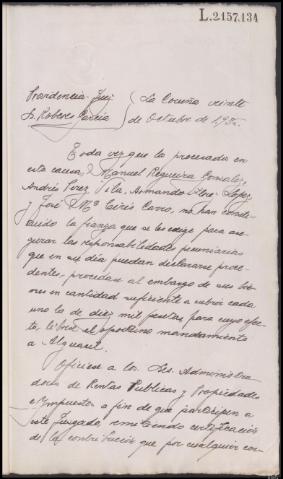 L.2157.134
Providencia Juez
Sr. Robers García
La Coruña veinte
de Octubre de
Toda vez que los procesados en
esta causa, Manuel Regueira González,
Andrés Pérez Vila, Armando López,
y José Mª Ciris Carro, no han consti-
tuido la fianza que se les exige para ase-
gurar las responsabilidades pecuniarias
que en su día puedan declararse proce-
dentes, procédase al embargo de sus bie-
nes en cantidad suficiente a cubrir cada
uno la de diez mil pesetas para cuyo efec-
to, líbrese el oportuno mandamiento
a Alguacil.
Ofíciese a los Sres. Administra
dores de Rentas Públicas y Propiedades
e Impuestos a fin de que participen a
este Juzgado, remitiendo certificación
de la contribución que por cualquier con-